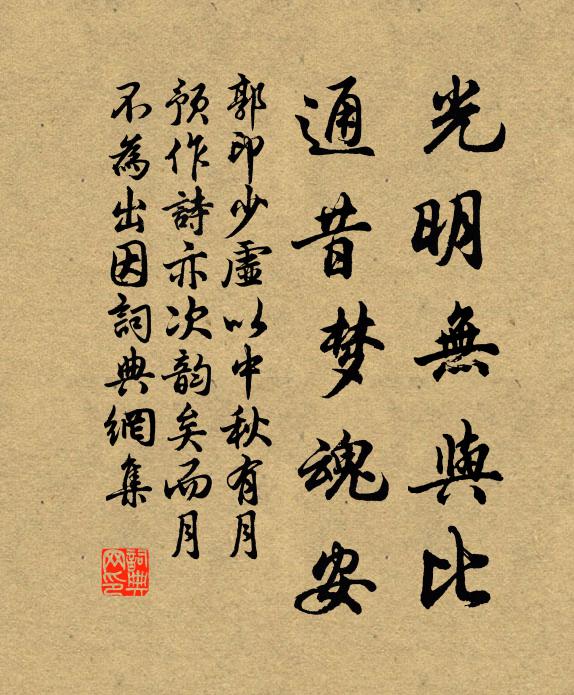 光明無與比
通昔梦魂安
郭印少虛以中秋有月
預作詩亦次韵矣而月
不為出因詞典網集
詞典
网印